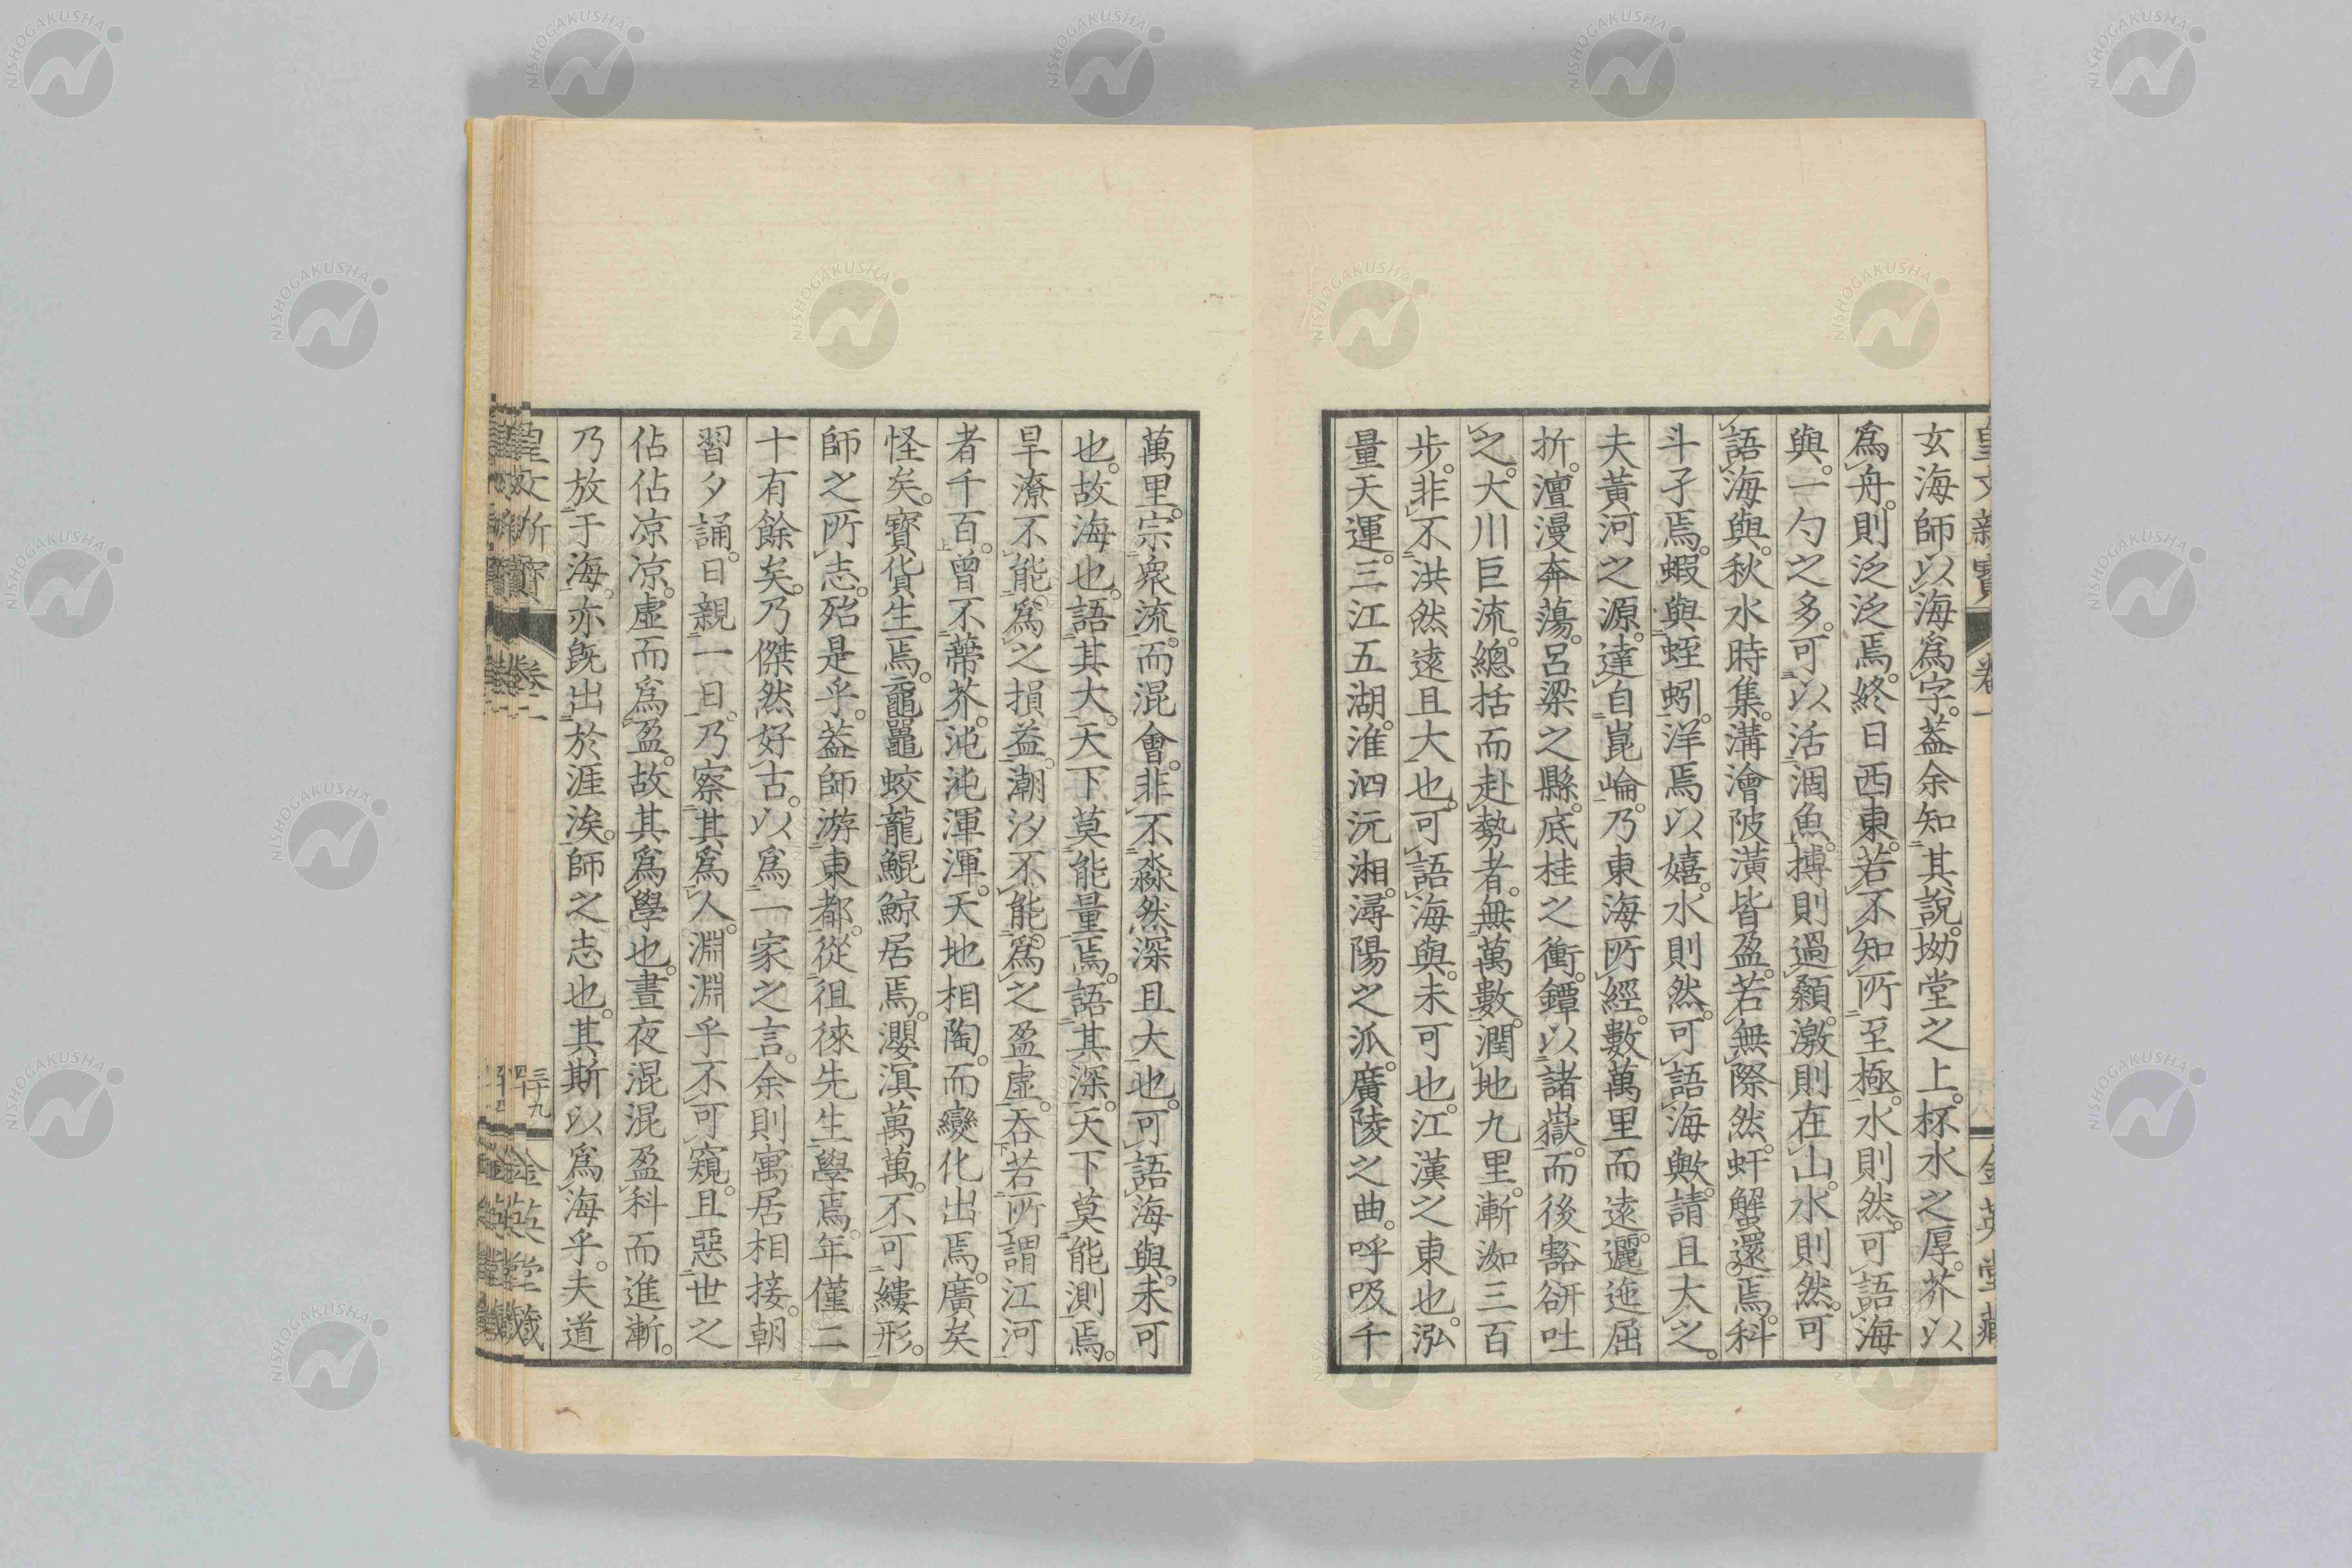 玄海師以海爲字。葢余知其說。坳堂之上。杯水之厚。芥以
爲舟。則泛泛焉。終日西東。若不知所至極。水則然。可語海
與。一勺之多。可以活涸魚。搏則過顙。激則在山。水則然。可
語海與。秋水時集。溝澮陂潢皆盈。若無際然。虷蟹還焉。科
斗孑焉。蝦與蛭蚓。洋焉以嬉。水則然。可語海歟。請且大之。
夫黃河之源。達自崑崘。乃東海所經。數萬里而遠。邐迤屈
折。澶漫奔蕩。呂梁之縣。底桂之衝。鐔以諸嶽。而後豁谺吐
之。大川巨流。總括而赴勢者。無萬數。潤地九里。漸洳三百
步。非不洪然遠且大也。可語海與。未可也。江漢之東也。泓
量天運。三江五湖。淮泗沅湘。潯陽之派。廣陵之曲。呼吸千
萬里。宗衆流。而混會。非不淼然深且大也。可語海與。未可
也。故海也。語其大。天下莫能量焉。語其深。天下莫能測焉。
旱潦不能爲之損益。潮汐不能爲之盈虛。吞若所謂江河
者千百。曾不蔕芥。沌沌渾渾。天地相陶。而變化出焉。廣矣
怪矣。寶貨生焉。黿鼉蛟龍鯤鯨居焉。瀴溟萬萬。不可縷形。
師之所志。殆是乎。葢師游東都。從徂徠先生學焉。年僅二
十有餘矣。乃傑然好古。以爲一家之言。余則寓居相接。朝
習夕誦。日親一日。乃察其爲人。淵淵乎不可窺。且惡世之
佔佔凉凉。虛而爲盈。故其爲學也。晝夜混混盈科而進漸。
乃放于海。亦旣出於涯涘。師之志也。其斯以爲海乎。夫道
卷二
三十九